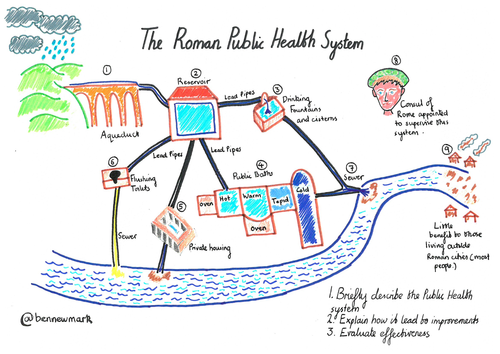 The Roman Public Health System
1
Aqueduct
2
Reservoir
Lead Pipes
3
Drinking
Fountains
and cisterns
8
Consul of
Rome appointed
to supervise this
system.
6
Flushing
Toilets
Lead Pipes
Lead Pipes
4
Public Baths
Oven
Hot
Warm
Tepid
Cold
Oven
7
Sewer
9
Little
benefit to those
living outside
Roman cities (most
people.)
5
Private housing
Sewer
1. Briefly describe the Public Health
system
2. Explain how it lead to improvements
3. Evaluate effectiveness
@bennewmark